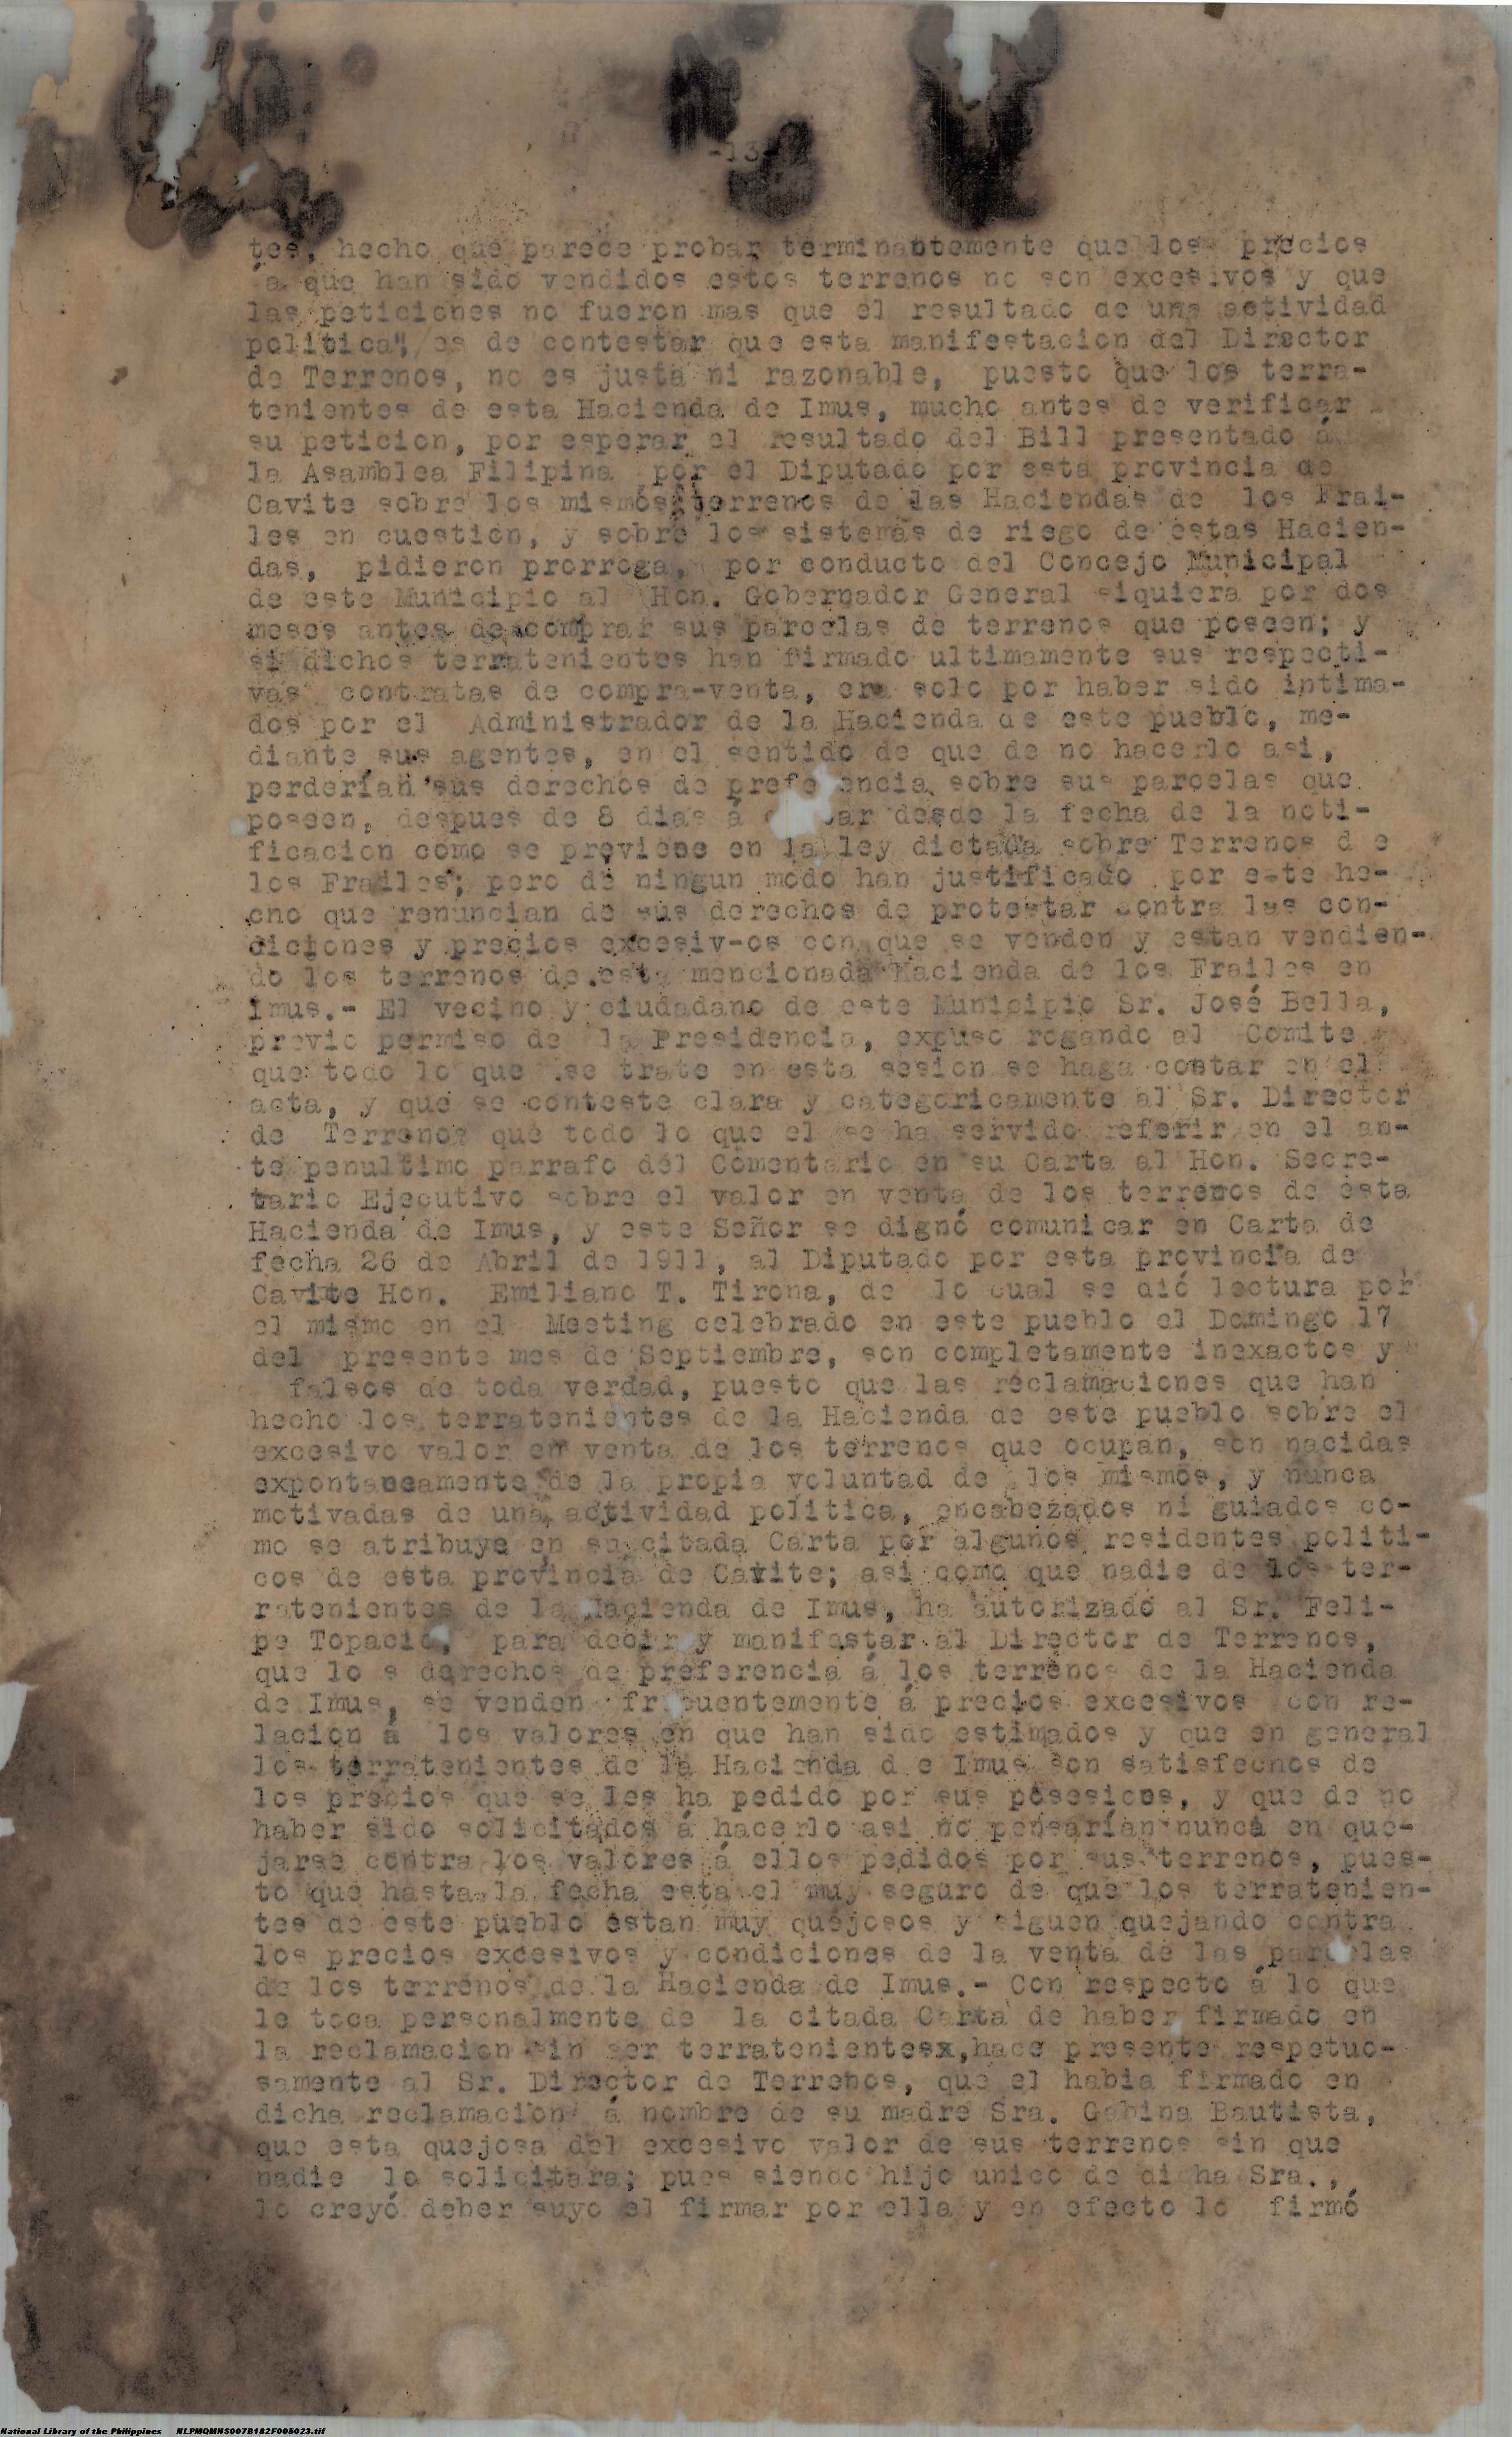 -13-
tes, hecho que parece probar terminantemente que los precios
a que han sido vendidos estos terrenos no son excesivos y que
las peticiones no fueron mas que el resultado de una actividad
politica", es de contestar que esta manifestacion del Director
de Terrenos, no es justa ni razonable, puesto que los terra-
tenientes de esta Hacienda de Imus, mucho antes de verificar
su peticion, por esperar el resultado del Bill presentado á
la Asamblea Filipina por el Diputado por esta provincia de
Cavite sobre los mismos terrenos de las Haciendas de los Frai-
les en cuestion, y sobre los sistemas de riego de estas Hacien-
das, pidieron prorroga, por conducto del Concejo Municipal
de este Municipio al Hon. Gobernador General siquiera por dos
meses antes de comprar sus parcelas de terrenos que poseen; y
si dichos terratenientes han firmado ultimamente sus respecti-
vas contratas de compra-venta, era solo por haber sido intima-
dos por el Administrador de la Hacienda de este pueblo, me-
diante sus agentes, en el sentido de que de no hacerlo asi,
perderían sus derechos de prefe encia sobre sus parcelas que
poseen, despues de 8 dias á desde la fecha de la noti-
ficacion como se previene en la ley dictada sobre Terrenos d e
los Frailes; pero de ningun modo han justificado por este he-
cho que renuncian de sus derechos de protestar contra las con-
diciones y precios excesiv-os con que se venden y estan vendien-
do los terrenos de esta mencionada Hacienda de los Frailes en
Imus.- El vecino y ciudadano de este Municipio Sr. José Bella,
previo permiso de la Presidencia, expuso rogando al Comite
que todo lo que se trate en esta sesion se haga costar en el
acta, y que se conteste clara y categoricamente al Sr. Director
de Terrenos que todo lo que el se ha servido referir en el an-
te penultimo parrafo del Comentario en su Carta al Hon. Secre-
tario Ejecutivo sobre el valor en venta de los terrenos de esta
Hacienda de Imus, y este Señor se dignó comunicar en Carta de
fecha 26 de Abril de 1911, al Diputado por esta provincia de
Cavite Hon. Emiliano T. Tirona, de lo cual se dió lectura por
el mismo en el Meeting celebrado en este pueblo el Domingo 17
del presente mes de Septiembre, son completamente inexactos y
falsos de toda verdad, puesto que las reclamaciones que han
hecho los terratenientes de la Hacienda de este pueblo sobre el
excesivo valor en venta de los terrenos que ocupan, son nacidas
expontaneamente de la propia voluntad de los mismos, y nunca
motivadas de una actividad politica, encabezados ni guiados co-
mo se atribuye en su citada Carta por algunos residentes politi-
cos de esta provincia de Cavite; asi como que nadie de los ter-
ratenientes de la Hacienda de Imus, ha autorizado al Sr. Feli-
pe Topacio, para decir y manifestar al Director de Terrenos,
que lo s derechos de preferencia á los terrenos de la Hacienda
de Imus, se venden frecuentemente á precios excesivos con re-
lacion á los valores en que han sido estimados y que en general
los terratenientes de la Hacienda d e Imus son satisfechos de
los precios que se les ha pedido por sus posesicns, y que de no
haber sido solicitados á hacerlo asi no pensarían nunca en que-
jarse contra los valores á ellos pedidos por sus terrenos, pues-
to que hasta la fecha esta el muy seguro de que los terratenien-
tes de este pueblo estan muy quejosos y siguen quejando contra
los precios excesivos y condiciones de la venta de las parcelas
de los terrenos de la Hacienda de Imus.- Con respecto á lo que
le toca personalmente de la citada Carta de haber firmado en
la reclamacion sin ser terratenientesx,hace presente respetuo-
samente al Sr. Director de Terrenos, que el habia firmado en
dicha reclamacion á nombre de su madre Sra. Gabina Bautista,
que esta quejosa del excesivo valor de sus terrenos sin que
nadie lo solicitara; pues siendo hijo unico de di ha Sra.,
lo creyó deber suyo el firmar por ella y en efecto lo firmó
National Library of the Philippines NLPMQMNS007B182F005023.tif